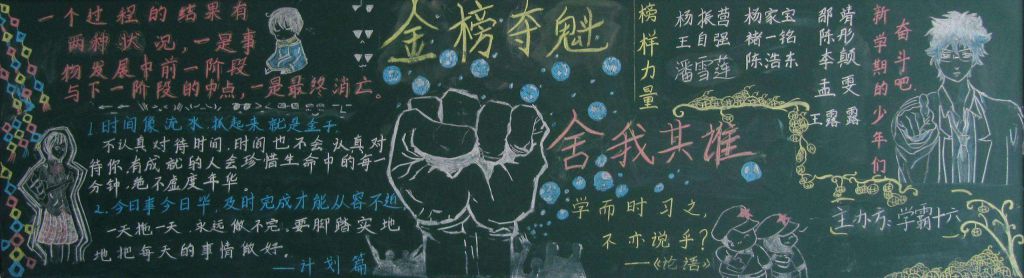 一个过程的结果有
两种状况，一是事
物发展中前一阶段
与下一阶段的中点，一是最终消亡。
1时间像流水，抓起来就是金子。
不认真对待时间，时间也不会认真对
待你，有成就的人会珍惜生命中的每一
分钟，绝不虚度年华。
2.今日事今日毕，及时完成才能从容不迫
一天拖一天，永远做不完，要脚踏实地
地把每天的事情做好。
——计划篇
金榜夺魁
舍我其谁
学而时习之，
不亦说乎？
——《论语》
榜样力量
杨振营 杨家宝 邹靖
王自强 褚一铭 陈彤
潘雪莲 陈浩东 李颠
孟雯
王露露
新学期的少年们
奋斗吧
主办方：学霸十六